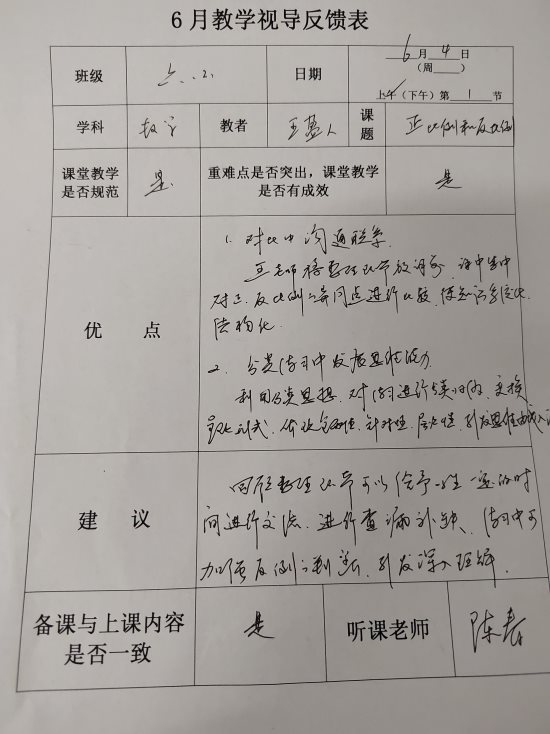 6月教学视导反馈表
班级 六.(2) 日期 6月4日
(周____)
上午(下午)第1节
学科 数学 教者 王 人 课题 正比例和反比例
课堂教学是否规范 是 重难点是否突出,课堂教学是否有成效 是
优 点
1. 对比中沟通联系
王老师将整理环节放课前,课中集中
对正、反比例的异同点进行比较,使知识系统化
结构化.
2. 分类练习中发展思维能力
利用分类思想,对练习进行 归纳,变换
呈现形式,体现 针对性、层次性,引发思维
建 议
回顾整理环节可以给予学生一定的时
间进行交流、进行查漏补缺、练习中可
加强反例的判断,引发深入理解.
备课与上课内容是否一致 是 听课老师 陈春